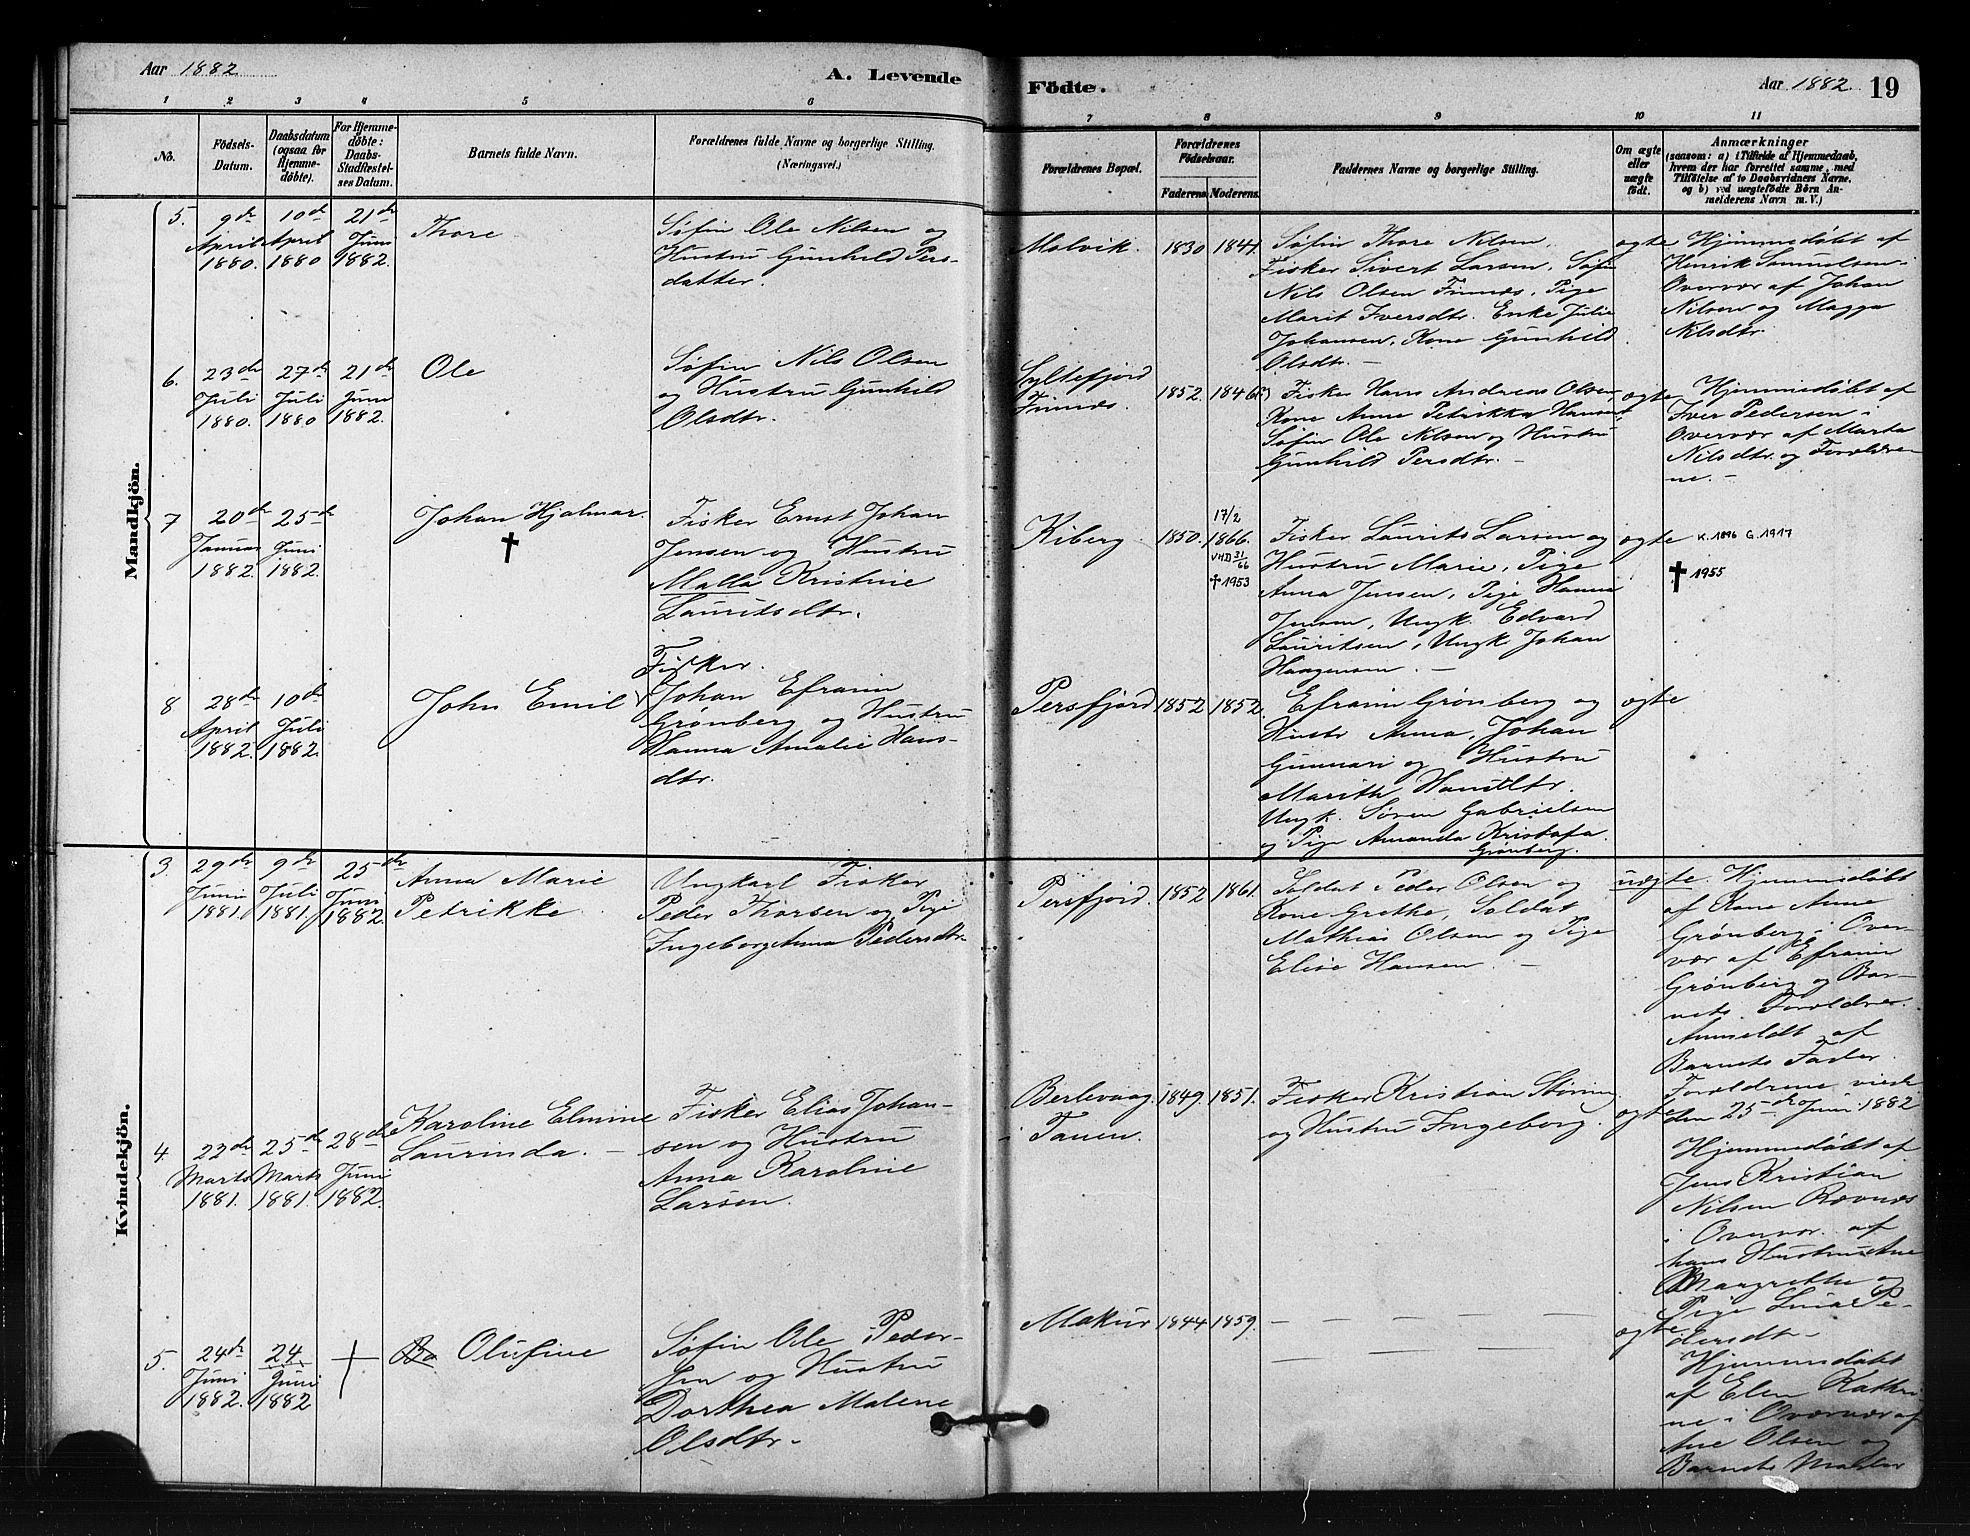 Aar 1882
A. Levende
Födte.
Aar 1882
19
1 2 3 4 5 6
7 8 9 10 11
No.
Födsels-
Datum.
Daabsdatum
(ogsaa for
Hjemme-
döbte).
For Hjemme-
döbte:
Daabs-
Stadfæstel-
ses Datum.
Barnets fulde Navn.
Forældrenes fulde Navne og borgerlige Stilling.
(Næringsvei.)
Forældrenes Bopæl.
Forældrenes
Födselsaar.
Faderens
Moderens.
Faddernes Navne og borgerlige Stilling.
Om ægte
eller
uægte
födt.
Anmærkninger
(saasom: a) i Tilfælde af Hjemmedaab,
hvem der har forrettet samme, med
Tilföielse af to Daabsvidners Navne,
og b) ved uægtefödte Börn An-
melderens Navn m. V.)
Mandkjön.
5.
9de
April
1880.
10de
April
1880
21de
Juni
1882.
Thore
Søfin Ole Nilsen og
Hustru Gunhild Pers-
datter.
Molvik.
1830
1841.
Søfin Thore Nilsen,
Fisker Sivert Larsen, Søfin
Nils Olsen Finnæs, Pige
Marit Iversdtr. Enke Julie
Johansen, Kone Gunhild
Olsdtr. –
ægte
Hjemmedøbt af
Henrik Samuelsen i
Overvær af Johan
Nilsen og Magga
Nilsdtr.
6.
23de
Juli
1880.
27de
Juli
1880
21de
Juni
1882.
Ole
Søfin Nils Olsen
og Hustru Gunhild
Olsdtr.
Syltefjord
Finnæs.
1852.
Fisker Hans Andreas Olsen,
Kone Anne Petrikka Hansen,
Søfin Ole Nilsen og Hustru
Gunhild Persdtr. –
ægte
Hjemmedøbt af
Iver Pedersen i
Overvær af Marta
Nilsdtr. og Forældre-
ne. –
7
20de
Januar
1882.
25de
Juni
1882.
Johan Hjalmar.
†
Fisker Ernst Johan
Jensen og Hustru
Malla Kristine
Lauritsdtr.
Kiberg.
1850.
17/2
1866.
VHD 31/66
† 1953
Fisker Laurits Larsen og
Hustru Marie, Pige
Anna Jensen, Pige Hanna
Jensen, Ungk. Edvard
Lauritsen, Ungk Johan
Haagensen. –
ægte
K. 1896 G. 1917
† 1955
8
28de
April
1882.
10de
Juli
1882.
John Emil
Fisker.
Johan Efraim
Grønberg og Hustru
Hanna Amalie Hans-
dtr.
Persfjord
1852
1852.
Efraim Grønberg og
Hustr Anna, Johan
Gunnari og Hustru
Marith
Ungk. Søren Gabrielsen
og Pige Amanda Kristafa
Grønberg.
ægte
Kvindekjön.
3.
29de
Juni
1881.
9de
Juli
1881.
25de
Juni
1882.
Anna Marie
Petrikke
Ungkarl Fisker
Peder Thorsen og Pige
Ingeborg Anna Pedersdtr.
Persfjord.
1852
1861.
Soldat Peder Olsen og
Kone Grethe, Soldat
Mathias Olsen og Pige
Elise Hansen. –
uægte.
Hjemmedøbt
af Kone Anne
Grønberg i Over-
vær af Efraim
Grønberg og Bar-
nets Forældre.
Anmeldt af
Barnets Fader.
Forældrene viede
den 25de Juni 1882
4.
22de
Marts
1881.
25de
Marts
1881.
28de
Juni
1882.
Karoline Elmine
Laurinda. –
Fisker Elias Johan-
sen og Hustru
Anna Karoline
Larsen.
Berlevaag
i Tanen.
1849.
1851.
Fisker Kristian
og Hustru Ingeborg.
ægte
Hjemmedøbt af
Jens Kristian
Nilsen Rævnæs
i Overvær af
hans Hustru Ane
Margrethe og
Pige Lina Pe-
dersdtr –
5.
24de
Juni
1882.
24
Juni
1882
Olufine
Søfin Ole Peder-
sen og Hustru
Dorthea Malene
Olsdtr. –
Makur
1844
1859.
– – – – –
– – – –
ægte
Hjemmedøbt
af Elen Kathri-
ne i Overvær af
Ane Olsen og
Barnets Moder